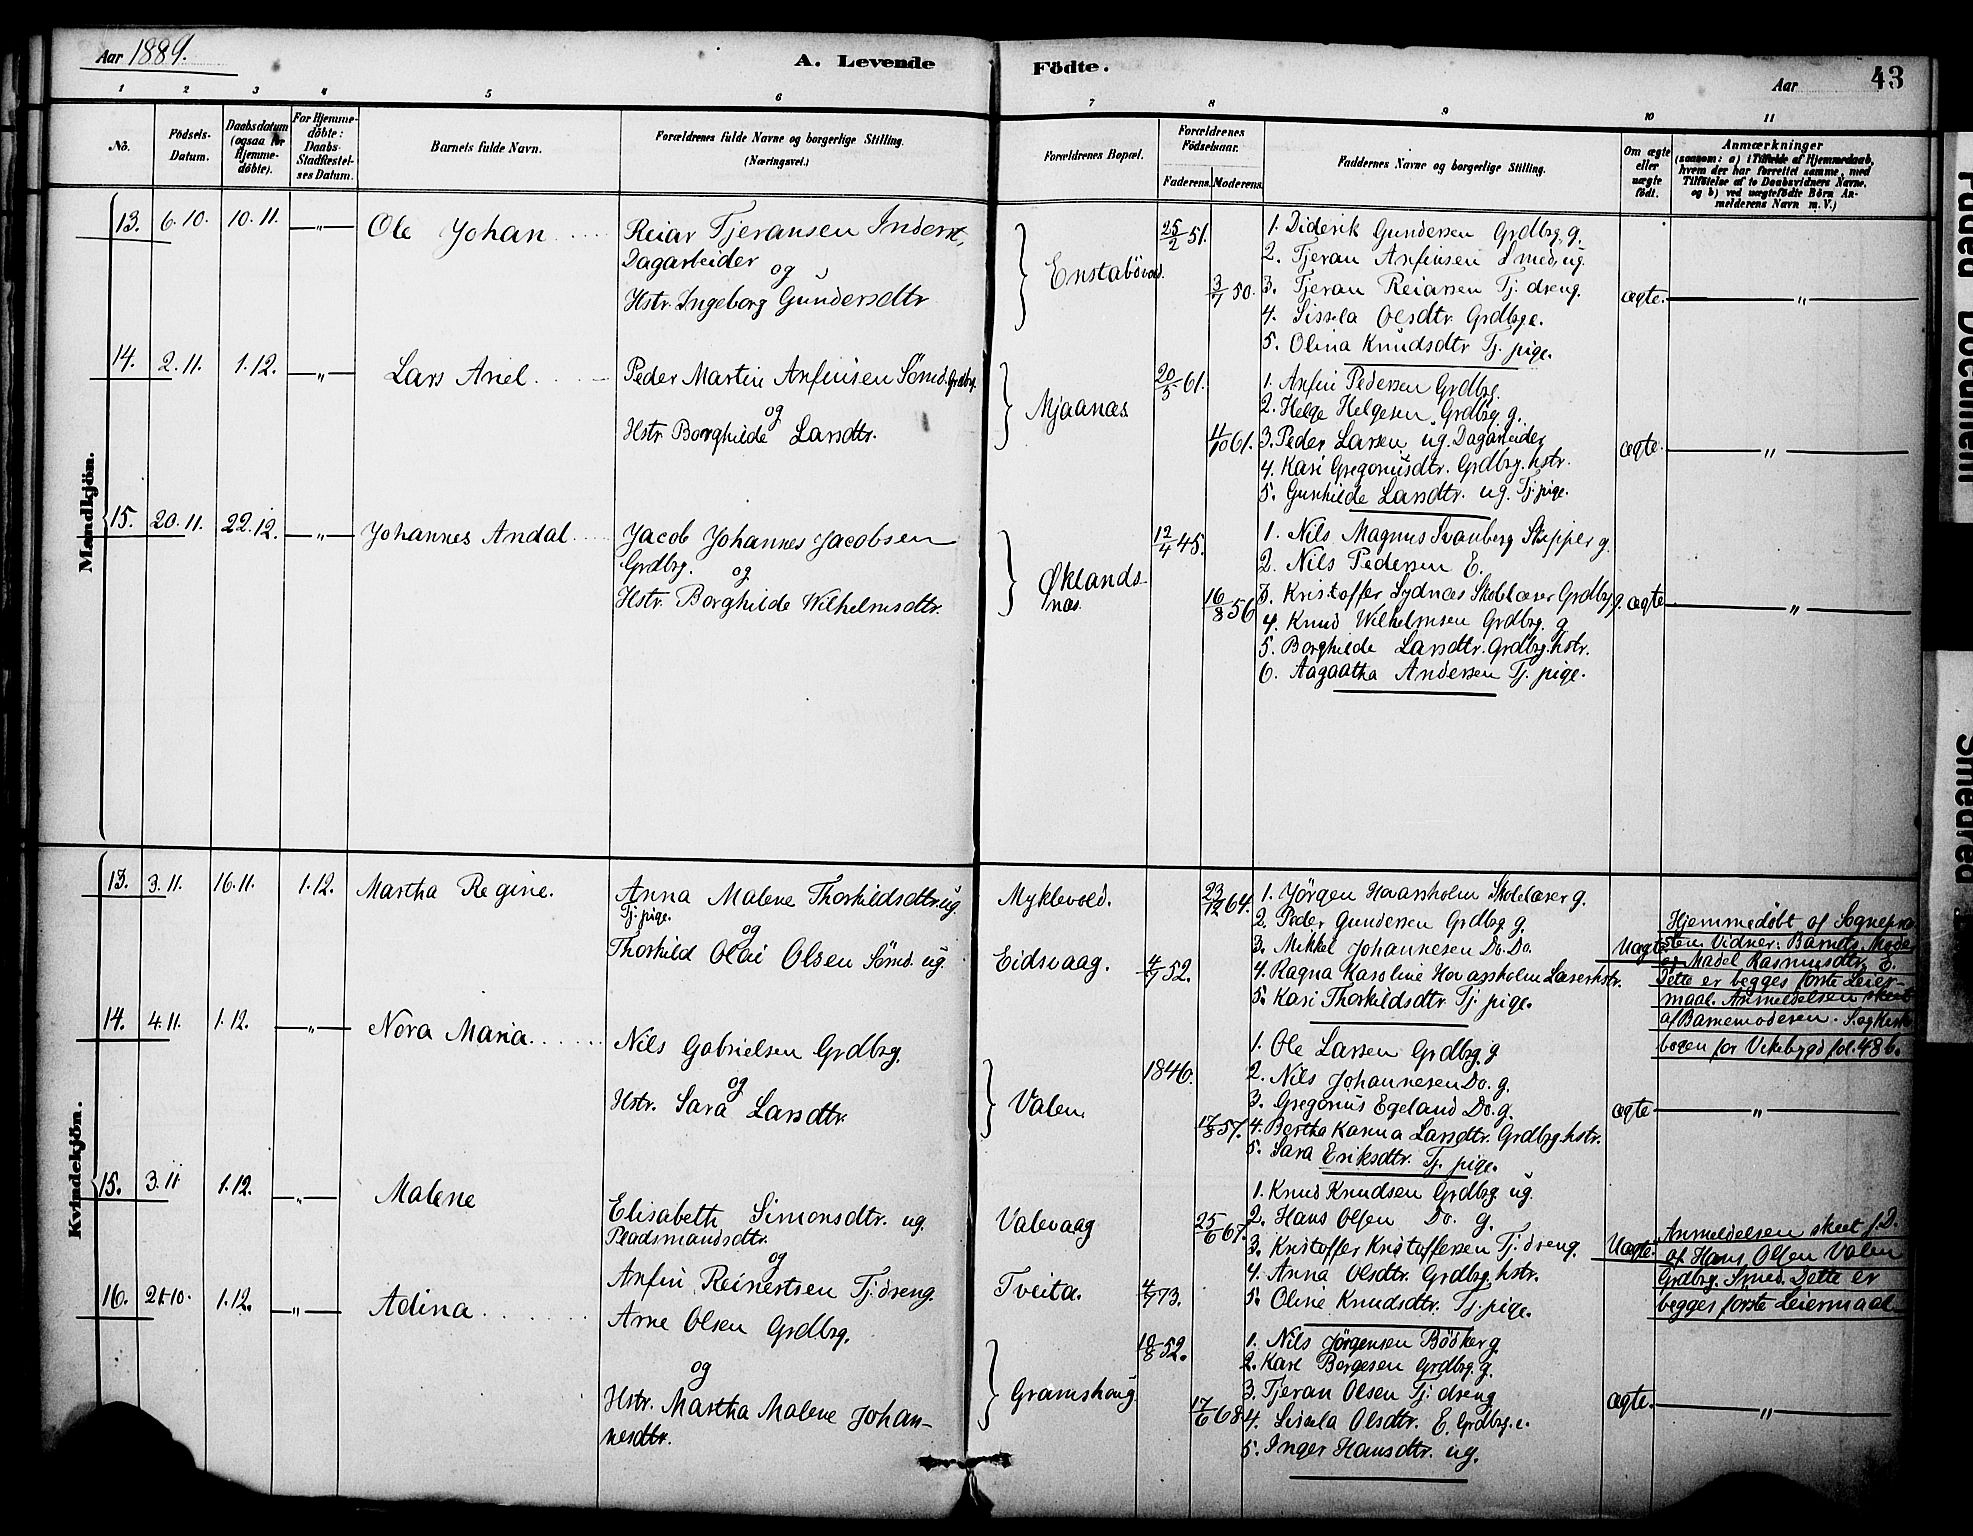 Aar 1889.
A. Levende Födte.
Aar
43
1 2 3 4 5 6 7 8 9 10 11
No.
Födsels-Datum.
Daabsdatum (ogsaa for Hjemmedöbte).
For Hjemmedöbte: Daabs-Stadfæstelses Datum.
Barnets fulde Navn.
Forældrenes fulde Navne og borgerlige Stilling.
(Næringsvei.)
Forældrenes Bopæl.
Forældrenes Födselsaar.
Faderens. Moderens.
Faddernes Navne og borgerlige Stilling.
Om ægte eller uægte födt.
Anmærkninger
(saasom: a) i Tilfælde af Hjemmedaab, hvem der har forrettet samme, med Tilföielse af to Daabsvidners Navne, og b) ved uægtefödte Börn Anmelderens Navn m. V.)
Mandkjön.
13. 6.10. 10.11. — " — Ole Johan
Reiar Tjeransen Inderst,
Dagarbeider
og
Hstr. Ingeborg Gundersdtr
Enstabövold.
25/2 51.
3/7 50.
1. Diderik Gundersen Grdbrg. g.
2. Tjeran Anfinsen Smed, ug.
3. Tjeran Reiarsen Tj. dreng.
4. Sissela Olsdtr. Grdbge.
5. Olina Knudsdtr Tj. pige.
ægte. — " —
14. 2.11. 1.12. — " — Lars Ariel.
Peder Martin Anfinsen Sömd. Grdbrg.
og
Hstr. Borghilde Larsdtr.
Mjaanæs
20/5 61.
11/10 61.
1. Anfin Pedersen Grdbrg.
2. Helge Helgesen Grdbrg. g.
3. Peder Larsen ug. Dagarbeider
4. Kari Gregoriusdtr. Grdbrg. hstr.
5. Gunhilde Larsdtr. ug. Tj. pige.
ægte. — " —
15. 20.11. 22.12. — " — Johannes Andal
Jacob Johannes Jacobsen
Grdbrg.
og
Hstr. Borghilde Wilhelmsdtr.
Øklands-
næs.
12/4 45.
16/8 56
1. Nils Magnus Svanberg Skipper g.
2. Nils Pedersen E.
3. Kristoffer Lydnæs Skolelærer Grdbrg g.
4. Knud Wilhelmsen Grdbrg. g
5. Borghilde Larsdtr. Grdbrg. hstr.
6. Aagaatha Andersen Tj. pige.
ægte — " —
Kvindekjön.
13. 3.11. 16.11. 1.12. Martha Regine.
Anna Malene Thorkildsdtr. ug.
Tj. pige.
og
Thorkild Olai Olsen Sömd. ug.
Myklevold.
Eidsvaag.
23/12 64.
4/7 52.
1. Jörgen Hovarsholm Skolelærer g.
2. Peder Gundersen Grdbrg. g.
3. Mikkel Johannesen Do. Do.
4. Ragna Karoline Hovarsholm Lærerhstr.
5. Kari Thorkildsdtr. Tj. pige.
Uægte
Hjemmedöbt af Sognepræ-
sten. Vidner: Barnets Mode
og Madel Rasmusdtr. E.
Dette er begges förste Leier-
maal. Anmeldelsen skeet
af Barnemoderen. S. og Kirke
bogen for Vikebygd fol. 48 b.
14. 4.11. 1.12. — " — Nora Maria
Nils Gabrielsen Grdbrg.
og
Hstr. Sara Larsdtr.
Valen
1846.
57.
1. Ole Larsen Grdbrg. g
2. Nils Johannesen Do. g.
3. Gregorius Egeland Do. g.
4. Bertha Karina Larsdtr. Grdbrg. hstr.
5. Sara Eriksdtr. Tj. pige.
ægte — " —
15. 3.11 1.12. — " — Malene
Elisabeth Simonsdtr. ug.
Pladsmandsdtr.
og
Anfin Reinertsen Tj. dreng.
Valevaag
Tveita.
25/6 67.
4/7 73.
1. Knud Knudsen Grdbrg. ug.
2. Hans Olsen Do. g.
3. Kristoffer Kristoffersen Tj. dreng.
4. Anna Olsdtr. Grdbrg. hstr.
5. Oline Knudsdtr. Tj. pige.
Uægte.
Anmeldelsen skeet s. D.
af Hans Olsen Valen
Grdbrg. Smed. Dette er
begges förste Leiermaal
16. 21.10. 1.12. — " — Adina
Arne Olsen Grdbrg.
og
Hstr. Martha Malene Johan-
nesdtr.
Gramshaug.
10/8 52.
17/6 68.
1. Nils Jörgensen Bödker g.
2. Karl Borgesen Grdbrg. g.
3. Tjeran Olsen Tj. dreng
4. Sissela Olsdtr. E. Grdbrg. e.
5. Inger Hansdtr. ug.
ægte. — " —
Faded Document
Smeared